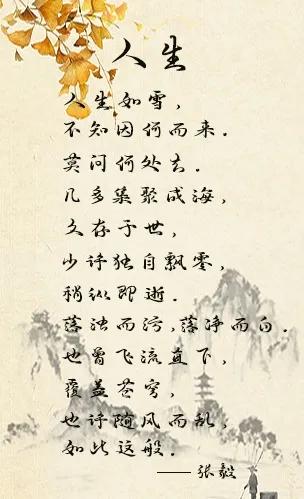 人生
人生如雪，
不知因何而来．
莫问何处去．
几多集聚成海，
久存于世，
少许独自飘零，
稍纵即逝．
落浊而污，落净而白．
也曾飞流直下，
覆盖苍穹，
也许随风而乱，
如此这般．
——张毅